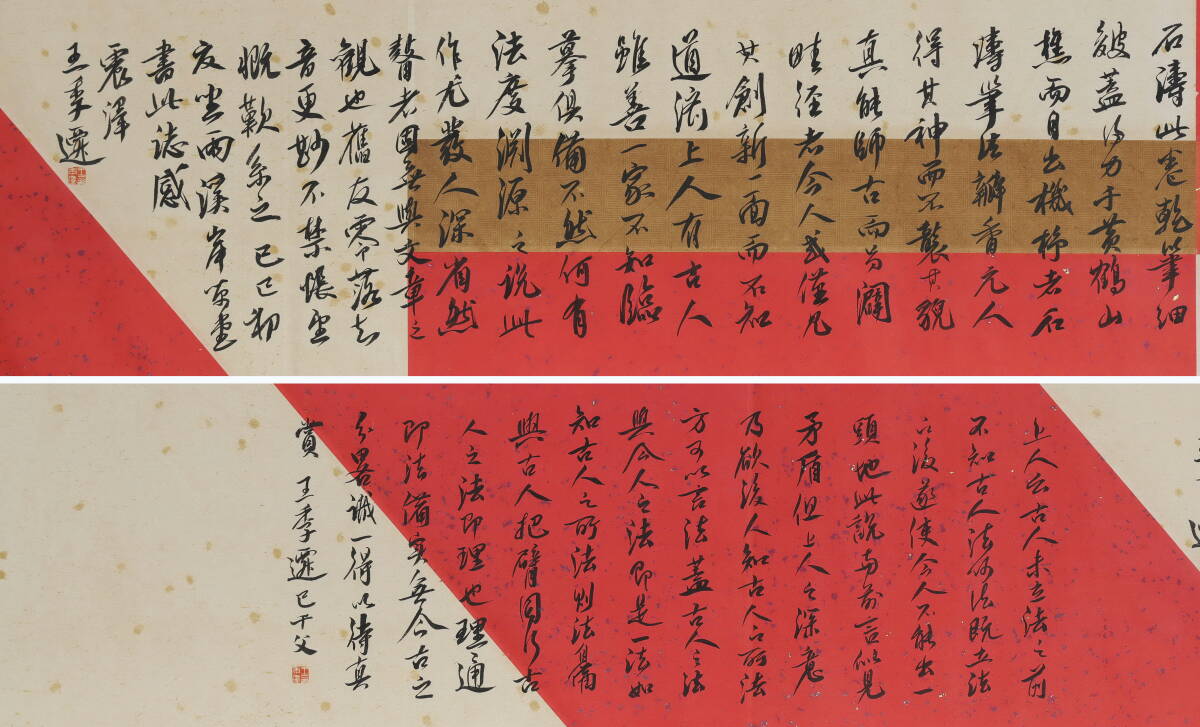 石濤此卷乾筆細
皴蓋得力于黃鶴山
樵而自出機杼者石
濤筆法瓣香元人
得其神而不襲其貌
真能師古而另闢
畦徑者今人或僅見
其創新一面而不知
道濟上人有古人
雖善一家不知臨
摹俱備不然何有
法度淵源之說此
作尤發人深省然
瞽者固無與文章之
觀也舊友零落知
音更妙不禁悵望
慨歎系之己巳初
夏坐雨溪岸草堂
書此誌感
震澤
王季遷
上人云古人未立法之前
不知古人法何法既立法
之後遂使今人不能出一
頭地此說與前言似見
矛盾但上人之深意
乃欲後人知古人之所法
方可以言法蓋古人之法
與今人之法即是一法如
知古人之所法則法自備
與古人把臂同行古
人之法即理也理通
即法備實無今古之
分畧識一得以待真
賞 王季遷己千父